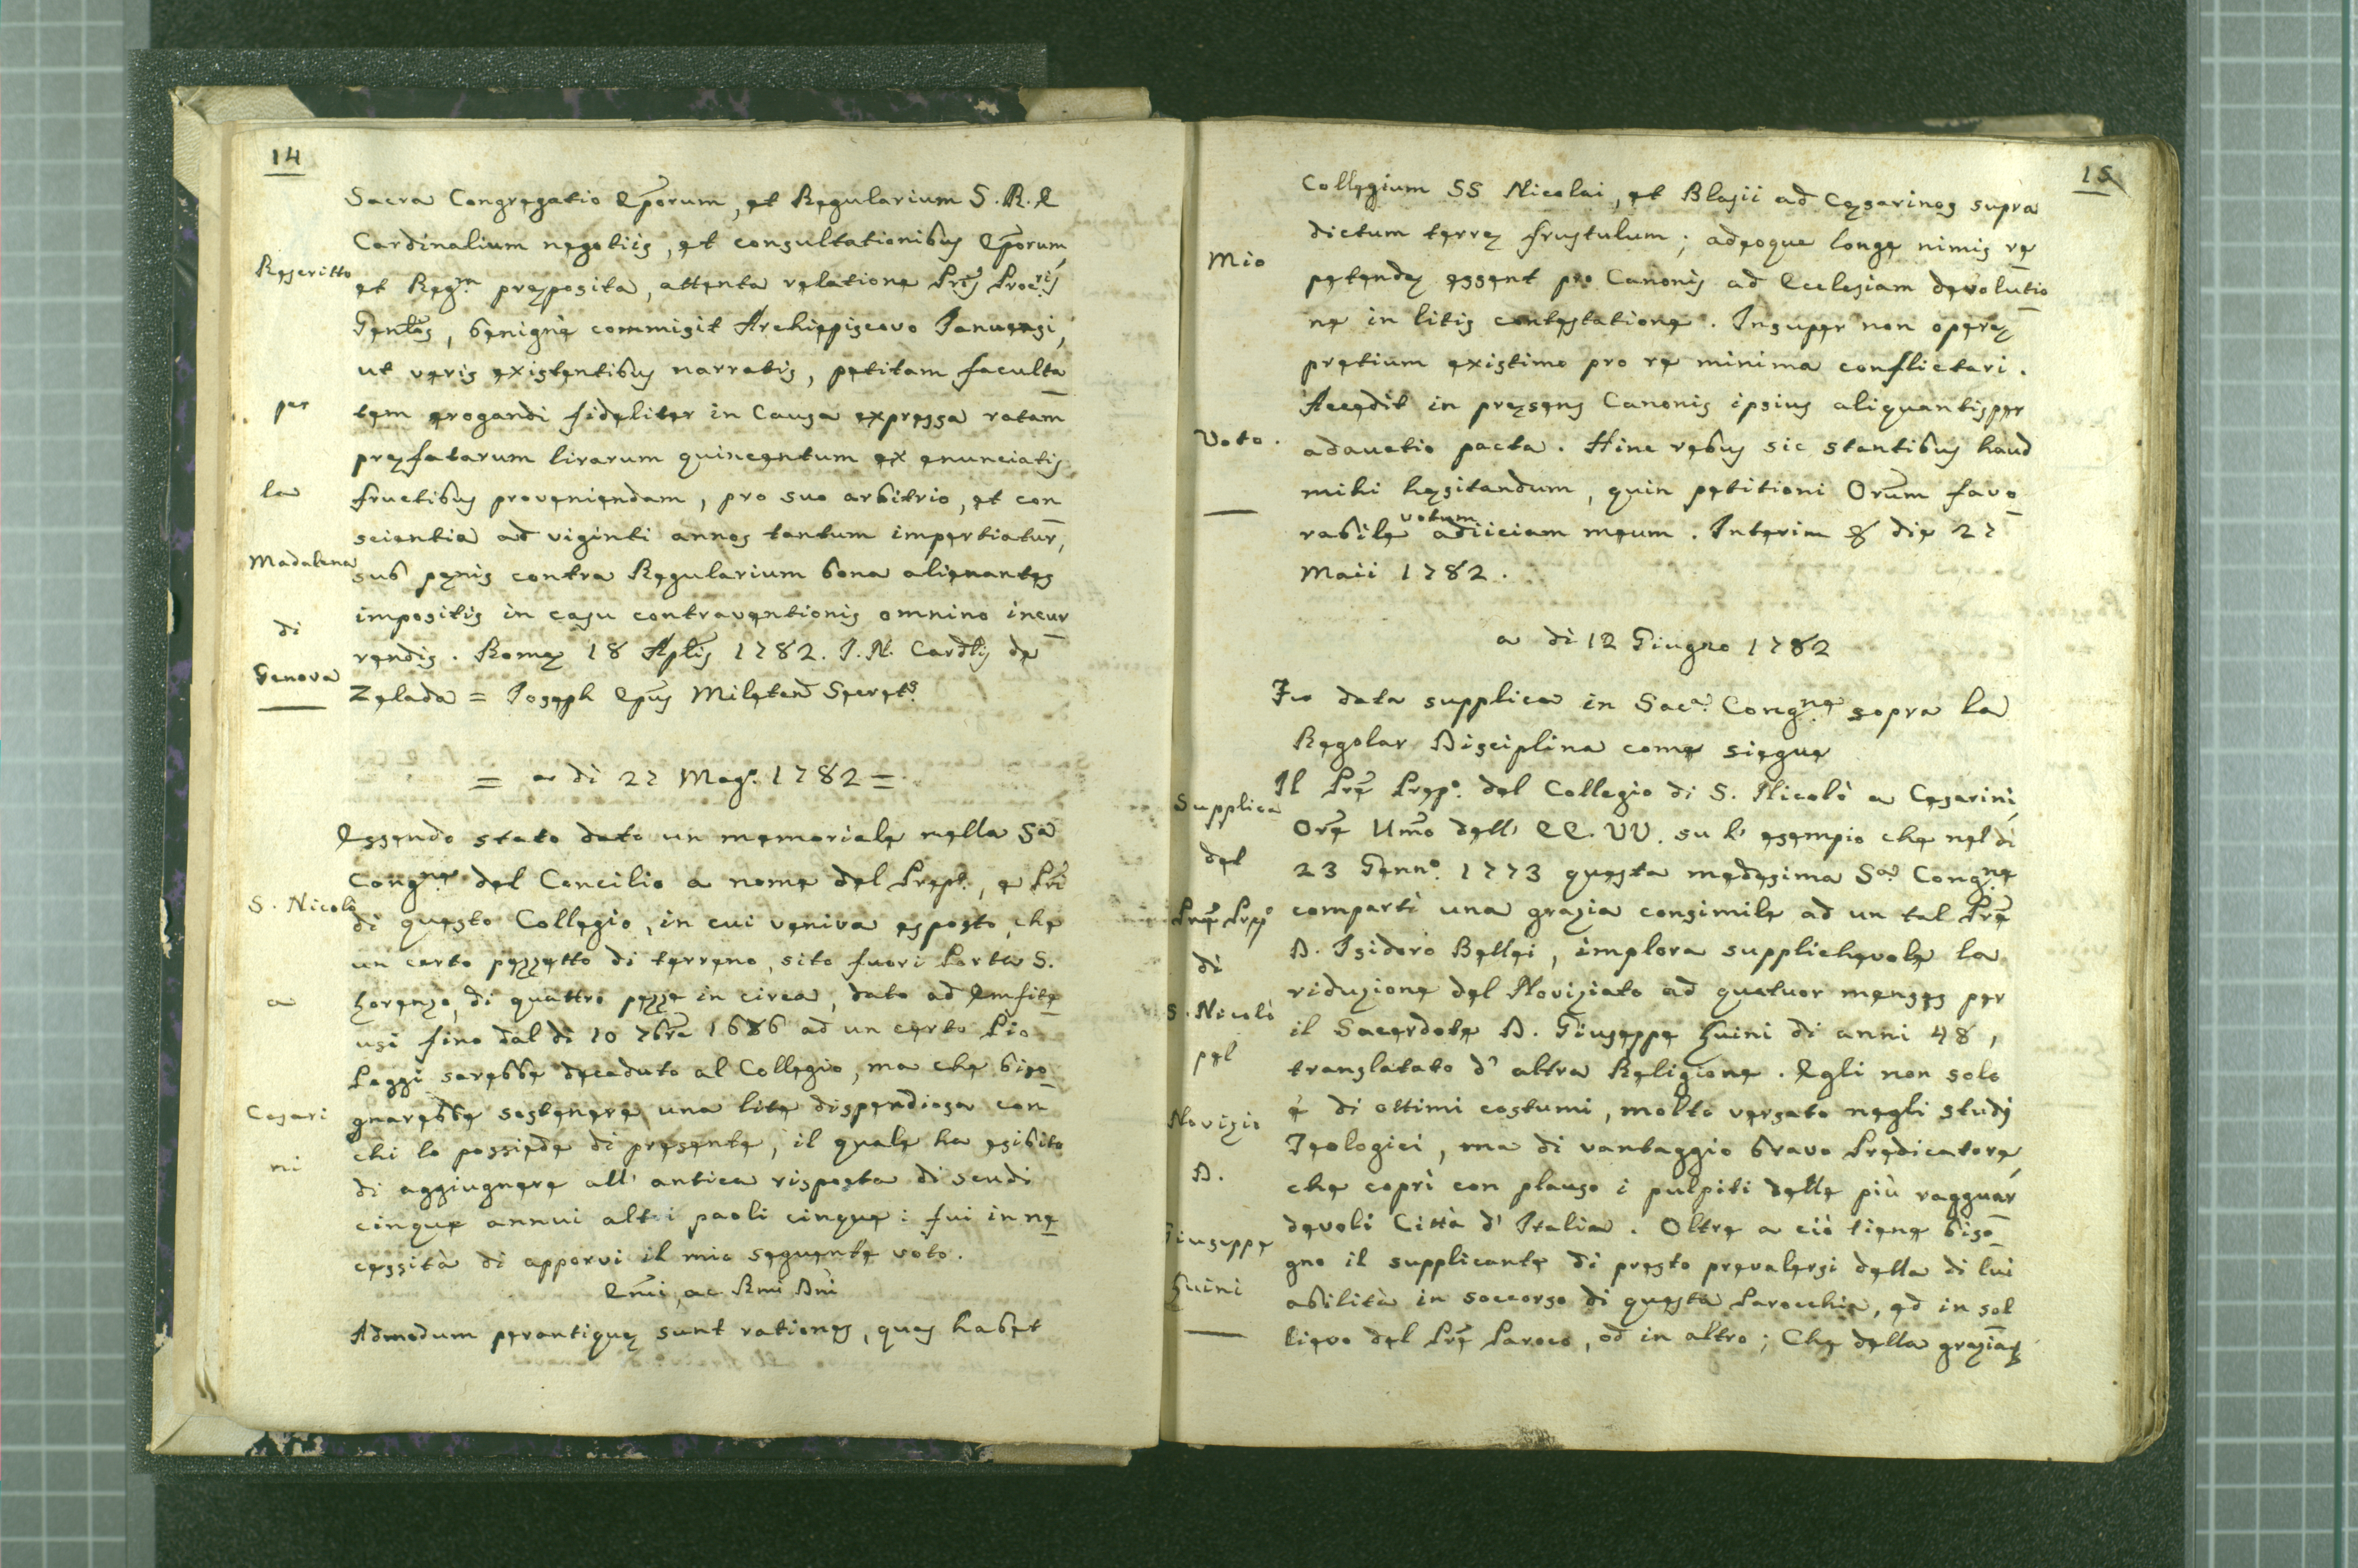 14
Sacra Congregatio Eporum, et Regularium S. R. E
Cardinalium negotiis, et consultationibus Eporum,
et Reg.m præposita, attenta relatione Pris Proc.ris
Gentlis, benignè commisit Archiepiscovo Januensi,
ut veris existentibus narratis, petitam faculta
tem erogandi fideliter in Causa expressa ratam
præfatarum lirarum quincentum ex enunciatis
fructibus proveniendam, pro suo arbitrio, et con
scientia ad viginti annos tantum impertiatur,
sub pænis contra Regularium bona alienantes
impositis in casu contraventionis omnino incur
rendis. Romæ 18 Aplis 1782. J. N. Cardlis de
Zelada = Joseph Epus Miletan Secrets.
Rescritto
per
la
Madalena
di
Genova
= a dì 27 Mag.o 1782 =
Essendo stato dato un memoriale nella Sa
Cong.ne del Concilio a nome del Prep.o, e Pri
di questo Collegio, in cui veniva esposto, che
un certo pezzetto di terreno, sito fuori Porta S.
Lorenzo, di quattro pezze in circa, dato ad Emfite
usi fino dal dì 10 7bre 1686 ad un certo Pio
Poggi sarebbe decaduto al Collegio, ma che biso
gnarebbe sostenere una lite dispendiosa con
chi lo possiede di presente, il quale ha esibito
di aggiugnere all' antica risposta di scudi
cinque annui altri paoli cinque: fui in ne
cessità di apporvi il mio seguente voto.
Emi, ac Rmi Dni
Admodum perantiquæ sunt rationes, quas habet
S. Nicolò
a
Cesari
ni
15
Collegium SS Nicolai, et Blasii ad Cæsarinos supra
dictum terræ frustulum; adeoque longe nimis re
petendæ essent pro Canonis ad Ecclesiam devolutio
ne in litis contestatione. Insuper non operæ
pretium existimo pro re minima conflictari.
Accedit in præsens Canonis ipsius aliquantisper
adauctio pacta. Hinc rebus sic stantibus haud
mihi hæsitandum, quin petitioni Orum favo
rabile votum adiiciam meum. Interim & die 27
Maii 1782.
Mio
Voto.
a dì 12 Giugno 1782
Fu data supplica in Sac.a Cong.ne sopra la
Regolar Disciplina come siegue
Il Pre Prep.o del Collegio di S. Nicolò a Cesarini,
Ore Umo dell' EE. VV. su l' esempio che nel dì
23 Genn.o 1773 questa medesima Sa Cong.ne
compartì una grazia consimile ad un tal Pre
D. Isidoro Bellei, implora supplichevole la
riduzione del Noviziato ad quatuor menses per
il Sacerdote D. Giuseppe Luini di anni 48,
translatato d' altra Religione. Egli non solo
è di ottimi costumi, molto versato negli studj
Teologici, ma di vantaggio bravo Predicatore,
che coprì con plauso i pulpiti delle più ragguar
devoli Città d' Italia. Oltre a ciò tiene biso
gno il supplicante di presto prevalersi della di lui
abilità in soccorso di questa Parocchia, ed in sol
lievo del Pre Paroco, od in altro; Che della grazia &
Supplica
del
Pre Prep.o
di
S. Nicolò
pel
Novizio
D.
Giuseppe
Luini